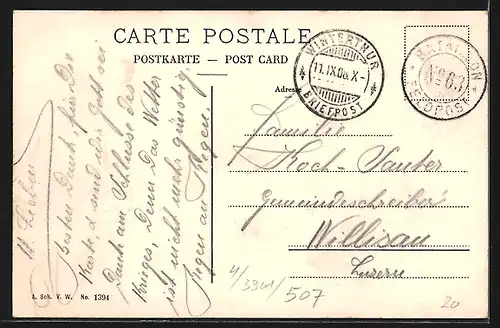 CARTE POSTALE
POSTKARTE — POST CARD
WINTERTHUR
11.IX.06.X-
BRIEFPOST
BATAILLON
No 63
FELDPOST
Adresse
M. Lieben
Besten Dank für Die
Karte & sind wir Gott sei
Dank am Schlusse des
Krieges, Denn Das Wetter
ist nicht mehr günstig
Regen an Regen.
Familie
Koch-Suter
Gemeindeschreiber
Willisau
Luzern
4/3301/507
20
A. Sch. V. W. No. 1394